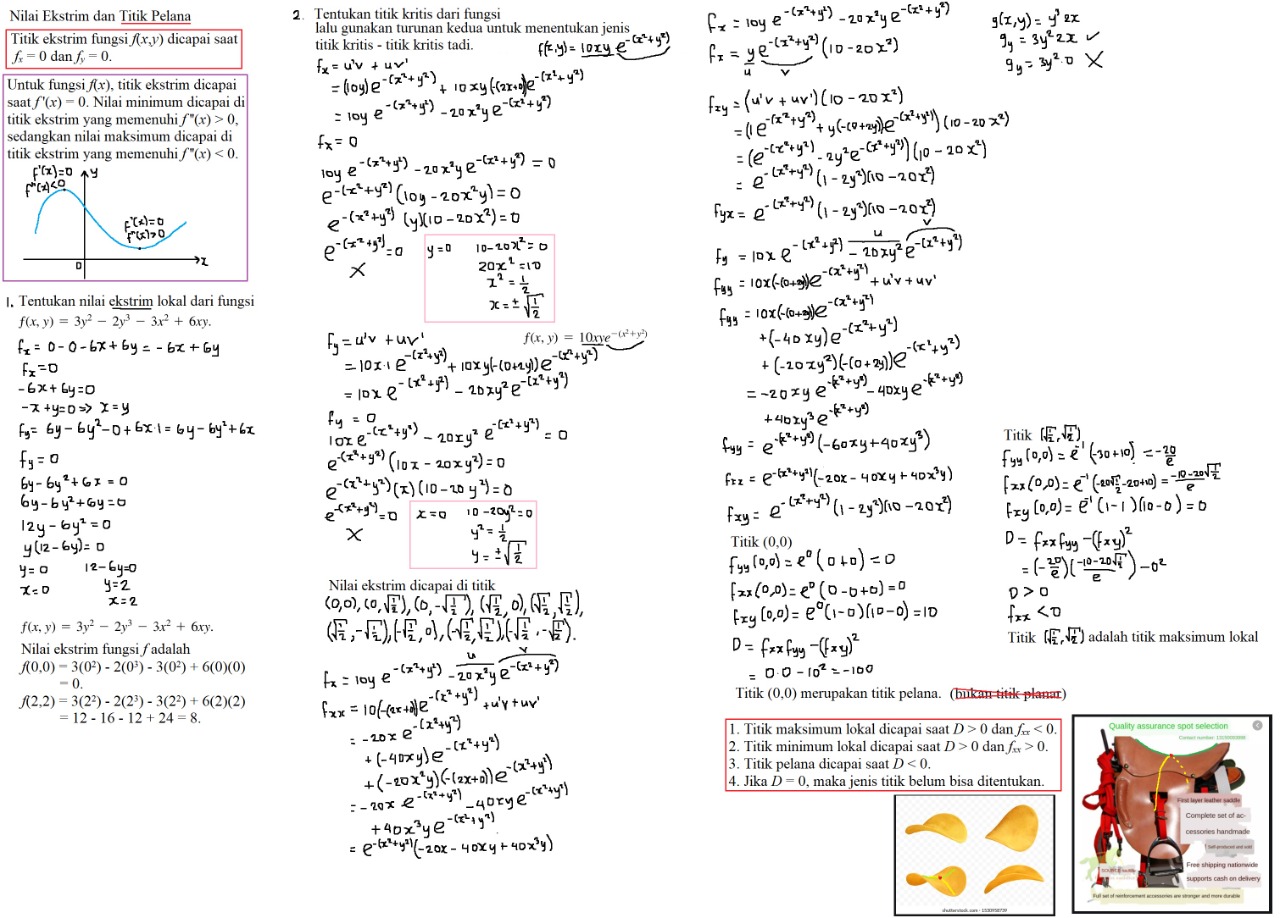 Nilai Ekstrim dan Titik Pelana
Titik ekstrim fungsi f(x,y) dicapai saat
fₓ = 0 dan fᵧ = 0.
Untuk fungsi f(x), titik ekstrim dicapai
saat f'(x) = 0. Nilai minimum dicapai di
titik ekstrim yang memenuhi f"(x) > 0,
sedangkan nilai maksimum dicapai di
titik ekstrim yang memenuhi f"(x) < 0.
f'(x)=0
f"(x)<0
y
f'(x)=0
f"(x)>0
0
x
1. Tentukan nilai ekstrim lokal dari fungsi
f(x, y) = 3y² − 2y³ − 3x² + 6xy.
fx = 0-0-6x+6y = -6x+6y
fx=0
-6x+6y=0
-x+y=0 => x=y
fy= 6y-6y²-0+6x·1=6y-6y²+6x
fy=0
6y-6y²+6x = 0
6y-6y²+6y=0
12y-6y²=0
y(12-6y)=0
y=0 12-6y=0
x=0 y=2
x=2
f(x, y) = 3y² − 2y³ − 3x² + 6xy.
Nilai ekstrim fungsi f adalah
f(0,0) = 3(0²) - 2(0³) - 3(0²) + 6(0)(0)
= 0.
f(2,2) = 3(2²) - 2(2³) - 3(2²) + 6(2)(2)
= 12 - 16 - 12 + 24 = 8.
2. Tentukan titik kritis dari fungsi
lalu gunakan turunan kedua untuk menentukan jenis
titik kritis - titik kritis tadi.
f(x,y)= 10xy e^-(x²+y²)
fx = u'v + uv'
= (10y)e^-(x²+y²) + 10xy(-(2x+0))e^-(x²+y²)
= 10y e^-(x²+y²) -20x²y e^-(x²+y²)
fx = 0
10y e^-(x²+y²) -20x²y e^-(x²+y²) = 0
e^-(x²+y²)(10y-20x²y)=0
e^-(x²+y²) (y)(10-20x²)=0
e^-(x²+y²)=0 y=0 10-20x²=0
X 20x²=10
x²=1/2
x=±√(1/2)
f(x, y) = 10xye^−(x²+y²)
fy = u'v + uv'
= 10x·1 e^-(x²+y²) + 10xy(-(0+2y))e^-(x²+y²)
= 10x e^-(x²+y²) - 20xy² e^-(x²+y²)
fy = 0
10x e^-(x²+y²) - 20xy² e^-(x²+y²) = 0
e^-(x²+y²)(10x-20xy²)=0
e^-(x²+y²)(x)(10-20y²)=0
e^-(x²+y²)=0 x=0 10-20y²=0
X y²=1/2
y=±√(1/2)
Nilai ekstrim dicapai di titik
(0,0), (0,√(1/2)), (0,-√(1/2)), (√(1/2),0), (√(1/2),√(1/2)),
(√(1/2),-√(1/2)), (-√(1/2),0), (-√(1/2),√(1/2)), (-√(1/2),-√(1/2)).
u v
fx = 10y e^-(x²+y²) -20x²y e^-(x²+y²)
fxx = 10(-(2x+0))e^-(x²+y²) +u'v+uv'
= -20x e^-(x²+y²)
+(-40xy)e^-(x²+y²)
+(-20x²y)(-(2x+0))e^-(x²+y²)
= -20x e^-(x²+y²) -40xye^-(x²+y²)
+40x³ye^-(x²+y²)
= e^-(x²+y²)(-20x-40xy+40x³y)
fx = 10y e^-(x²+y²) -20x²y e^-(x²+y²)
fx = y e^-(x²+y²) (10-20x²)
u v
g(x,y) = y³2x
gy = 3y²2x ✓
gy = 3y²·0 X
fxy = (u'v + uv')(10-20x²)
= (1e^-(x²+y²) + y(-(0+2y))e^-(x²+y²))(10-20x²)
= (e^-(x²+y²) - 2y²e^-(x²+y²))(10-20x²)
= e^-(x²+y²) (1-2y²)(10-20x²)
fyx = e^-(x²+y²) (1-2y²)(10-20x²)
u v
fy = 10x e^-(x²+y²) -20xy² e^-(x²+y²)
fyy = 10x(-(0+2y))e^-(x²+y²) +u'v+uv'
fyy = 10x(-(0+2y))e^-(x²+y²)
+(-40xy)e^-(x²+y²)
+(-20xy²)(-(0+2y))e^-(x²+y²)
= -20xy e^-(x²+y²) -40xy e^-(x²+y²)
+40xy³e^-(x²+y²)
fyy = e^-(x²+y²)(-60xy+40xy³)
fxx = e^-(x²+y²)(-20x-40xy+40x³y)
fxy = e^-(x²+y²)(1-2y²)(10-20x²)
Titik (0,0)
fyy(0,0)=e⁰(0+0)=0
fxx(0,0)=e⁰(0-0+0)=0
fxy(0,0)=e⁰(1-0)(10-0)=10
D = fxxfyy-(fxy)²
= 0·0-10²=-100
Titik (0,0) merupakan titik pelana. (bukan titik planar)
Titik (√(1/2),√(1/2))
fyy(0,0)=e⁻¹(-30+10)=-20/e
fxx(0,0)=e⁻¹(-20√(1/2)-20+10)=(-10-20√(1/2))/e
fxy(0,0)=e⁻¹(1-1)(10-0)=0
D = fxxfyy-(fxy)²
= (-20/e)((-10-20√(1/2))/e)-0²
D > 0
fxx <0
Titik (√(1/2),√(1/2)) adalah titik maksimum lokal
1. Titik maksimum lokal dicapai saat D > 0 dan fₓₓ < 0.
2. Titik minimum lokal dicapai saat D > 0 dan fₓₓ > 0.
3. Titik pelana dicapai saat D < 0.
4. Jika D = 0, maka jenis titik belum bisa ditentukan.
shutterstock.com · 1530958739
Quality assurance spot selection
First layer leather saddle
Complete set of ac-
cessories handmade
Self-produced and sold
Free shipping nationwide
supports cash on delivery
Full set of reinforcement accessories are stronger and more durable